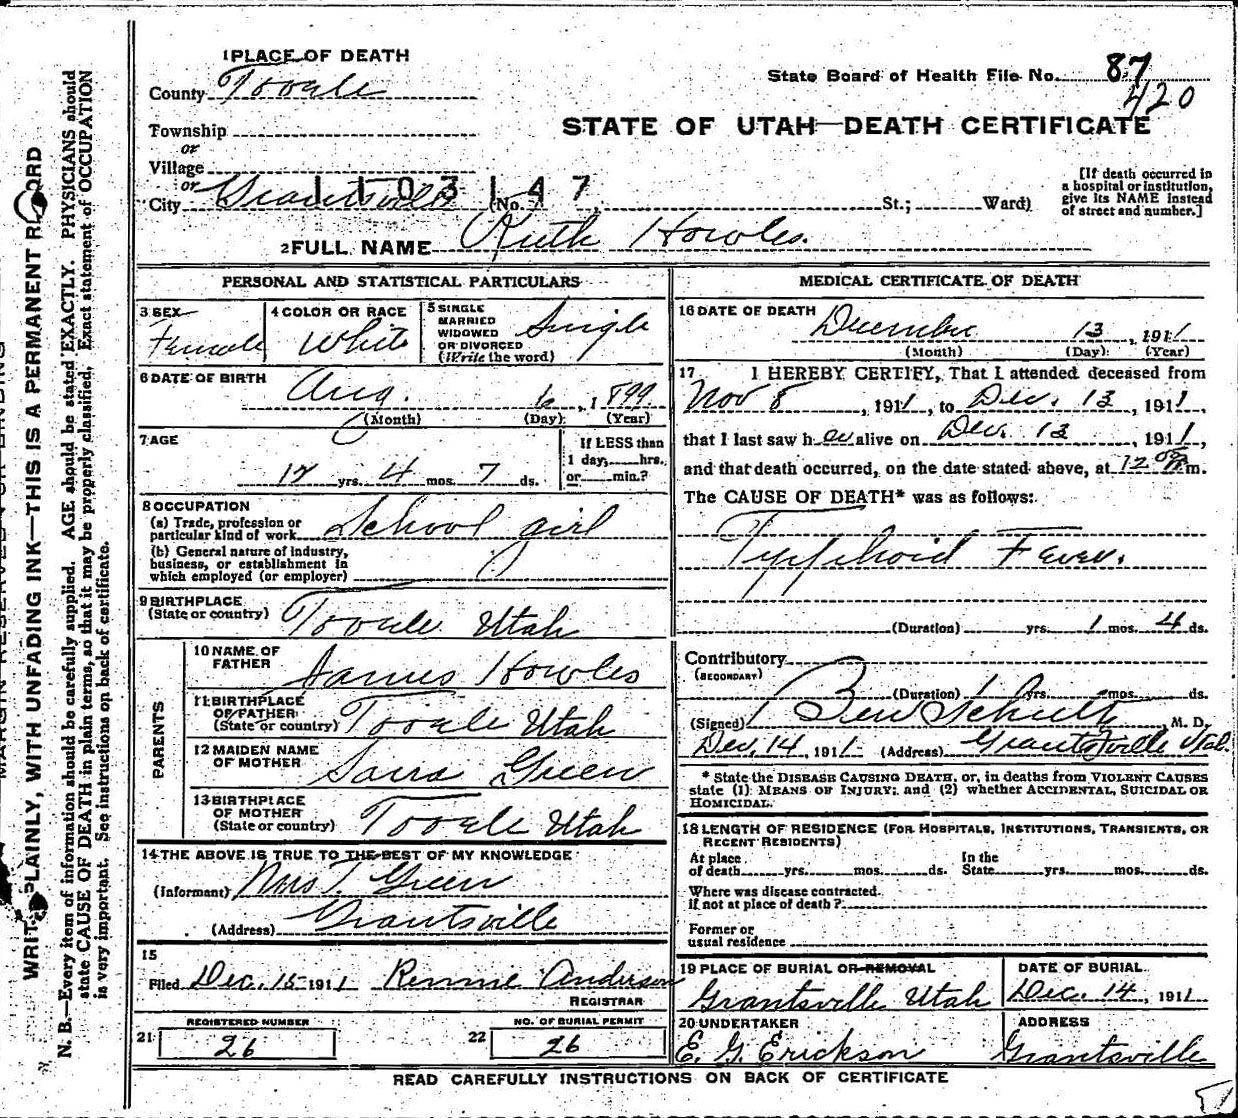 1 PLACE OF DEATH
County Tooele
State Board of Health File No. 87
420
Township
or
Village
or
City Grantsville (No. St.; Ward)
1103147
STATE OF UTAH—DEATH CERTIFICATE
[If death occurred in
a hospital or institution,
give its NAME instead
of street and number.]
2 FULL NAME Ruth Howles.
PERSONAL AND STATISTICAL PARTICULARS
3 SEX
Female
4 COLOR OR RACE
White
5 SINGLE
MARRIED
WIDOWED
OR DIVORCED
(Write the word)
Single
6 DATE OF BIRTH
Aug. 6, 1899
(Month) (Day) (Year)
7 AGE
12 yrs. 4 mos. 7 ds.
If LESS than
1 day, hrs.
or min.?
8 OCCUPATION
(a) Trade, profession or
particular kind of work School girl
(b) General nature of industry,
business, or establishment in
which employed (or employer)
9 BIRTHPLACE
(State or country) Tooele Utah
PARENTS
10 NAME OF
FATHER James Howles
11 BIRTHPLACE
OF FATHER
(State or country) Tooele Utah
12 MAIDEN NAME
OF MOTHER Sara Green
13 BIRTHPLACE
OF MOTHER
(State or country) Tooele Utah
14 THE ABOVE IS TRUE TO THE BEST OF MY KNOWLEDGE
(Informant) Mrs T. Green
(Address) Grantsville
15
Filed Dec. 15 1911 Rennie Anderson
REGISTRAR
REGISTERED NUMBER
21 26
NO. OF BURIAL PERMIT
22 26
MEDICAL CERTIFICATE OF DEATH
16 DATE OF DEATH
December 13, 1911
(Month) (Day) (Year)
17 I HEREBY CERTIFY, That I attended deceased from
Nov 8, 1911, to Dec. 13, 1911,
that I last saw h er alive on Dec. 13, 1911,
and that death occurred, on the date stated above, at 12 m.
The CAUSE OF DEATH* was as follows:
Typhoid Fever.
(Duration) yrs. 1 mos. 4 ds.
Contributory
(SECONDARY)
(Duration) yrs. mos. ds.
(Signed) Ben Schultz, M. D.
Dec. 14 1911 (Address) Grantsville Utah.
* State the DISEASE CAUSING DEATH, or, in deaths from VIOLENT CAUSES
state (1) MEANS OF INJURY; and (2) whether ACCIDENTAL, SUICIDAL OR
HOMICIDAL.
18 LENGTH OF RESIDENCE (FOR HOSPITALS, INSTITUTIONS, TRANSIENTS, OR
RECENT RESIDENTS)
At place
of death yrs. mos. ds.
In the
State yrs. mos. ds.
Where was disease contracted.
if not at place of death?
Former or
usual residence
19 PLACE OF BURIAL OR REMOVAL
Grantsville Utah
DATE OF BURIAL
Dec. 14, 1911
20 UNDERTAKER
E. G. Erickson
ADDRESS
Grantsville
READ CAREFULLY INSTRUCTIONS ON BACK OF CERTIFICATE
WRITE PLAINLY, WITH UNFADING INK—THIS IS A PERMANENT RECORD
N. B.—Every item of information should be carefully supplied. AGE should be stated EXACTLY. PHYSICIANS should
state CAUSE OF DEATH in plain terms, so that it may be properly classified. Exact statement of OCCUPATION
is very important. See instructions on back of certificate.